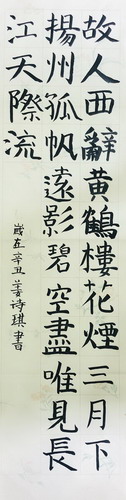 故人西辭黃鶴樓花煙三月下
揚州孤帆遠影碧空盡唯見長
江天際流
歲在辛丑姜诗琪書